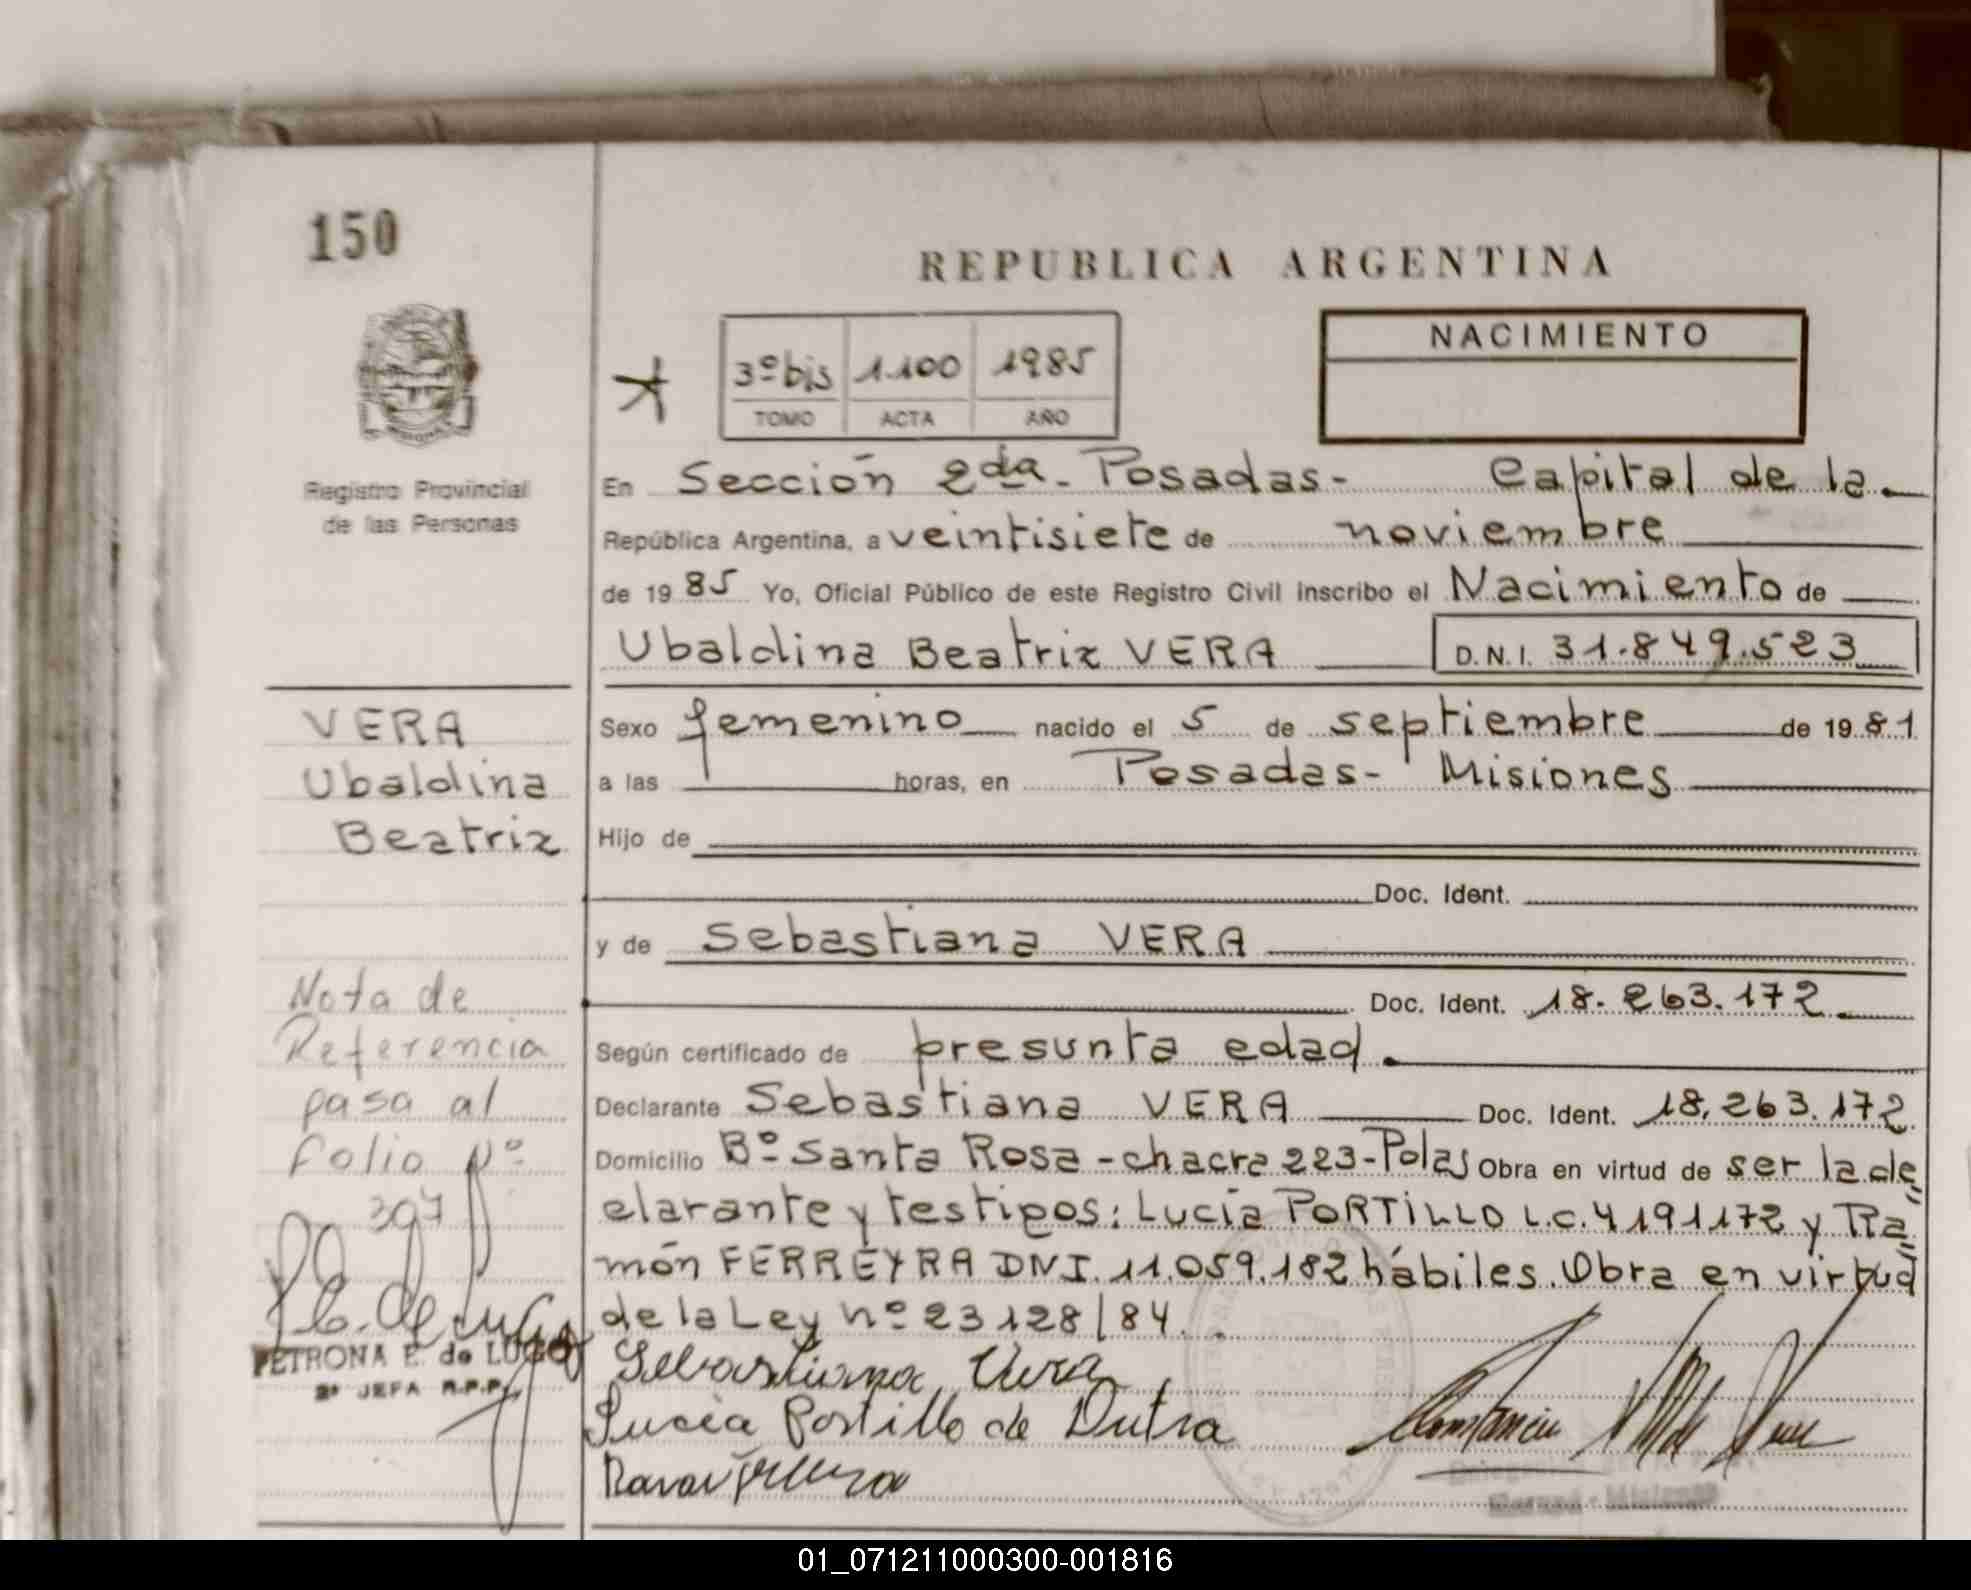 150
REPUBLICA ARGENTINA
NACIMIENTO
3º bis 1100 1985
TOMO ACTA AÑO
Registro Provincial
de las Personas
En Sección 2da - Posadas - Capital de la
República Argentina, a veintisiete de noviembre
de 1985 Yo, Oficial Público de este Registro Civil inscribo el Nacimiento de
Ubaldina Beatriz VERA D.N.I. 31.849.523
VERA
Ubaldina
Beatriz
Sexo femenino nacido el 5 de septiembre de 1981
a las horas, en Posadas - Misiones
Hijo de
Doc. Ident.
y de Sebastiana VERA
Doc. Ident. 18.263.172
Según certificado de presunta edad.
Declarante Sebastiana VERA Doc. Ident. 18.263.172
Domicilio Bº Santa Rosa - chacra 223 - Pdas Obra en virtud de ser la de=
clarante y testigos: Lucía PORTILLO L.C. 4191172 y Ra=
món FERREYRA DNI. 11.059.182 hábiles. Obra en virtud
de la Ley nº 23128/84.
Nota de
Referencia
pasa al
folio Nº
397
PETRONA E. de LUGO
2ª JEFA R.P.P.
Sebastiana Vera
Lucia Portillo de Dutra
01_071211000300-001816